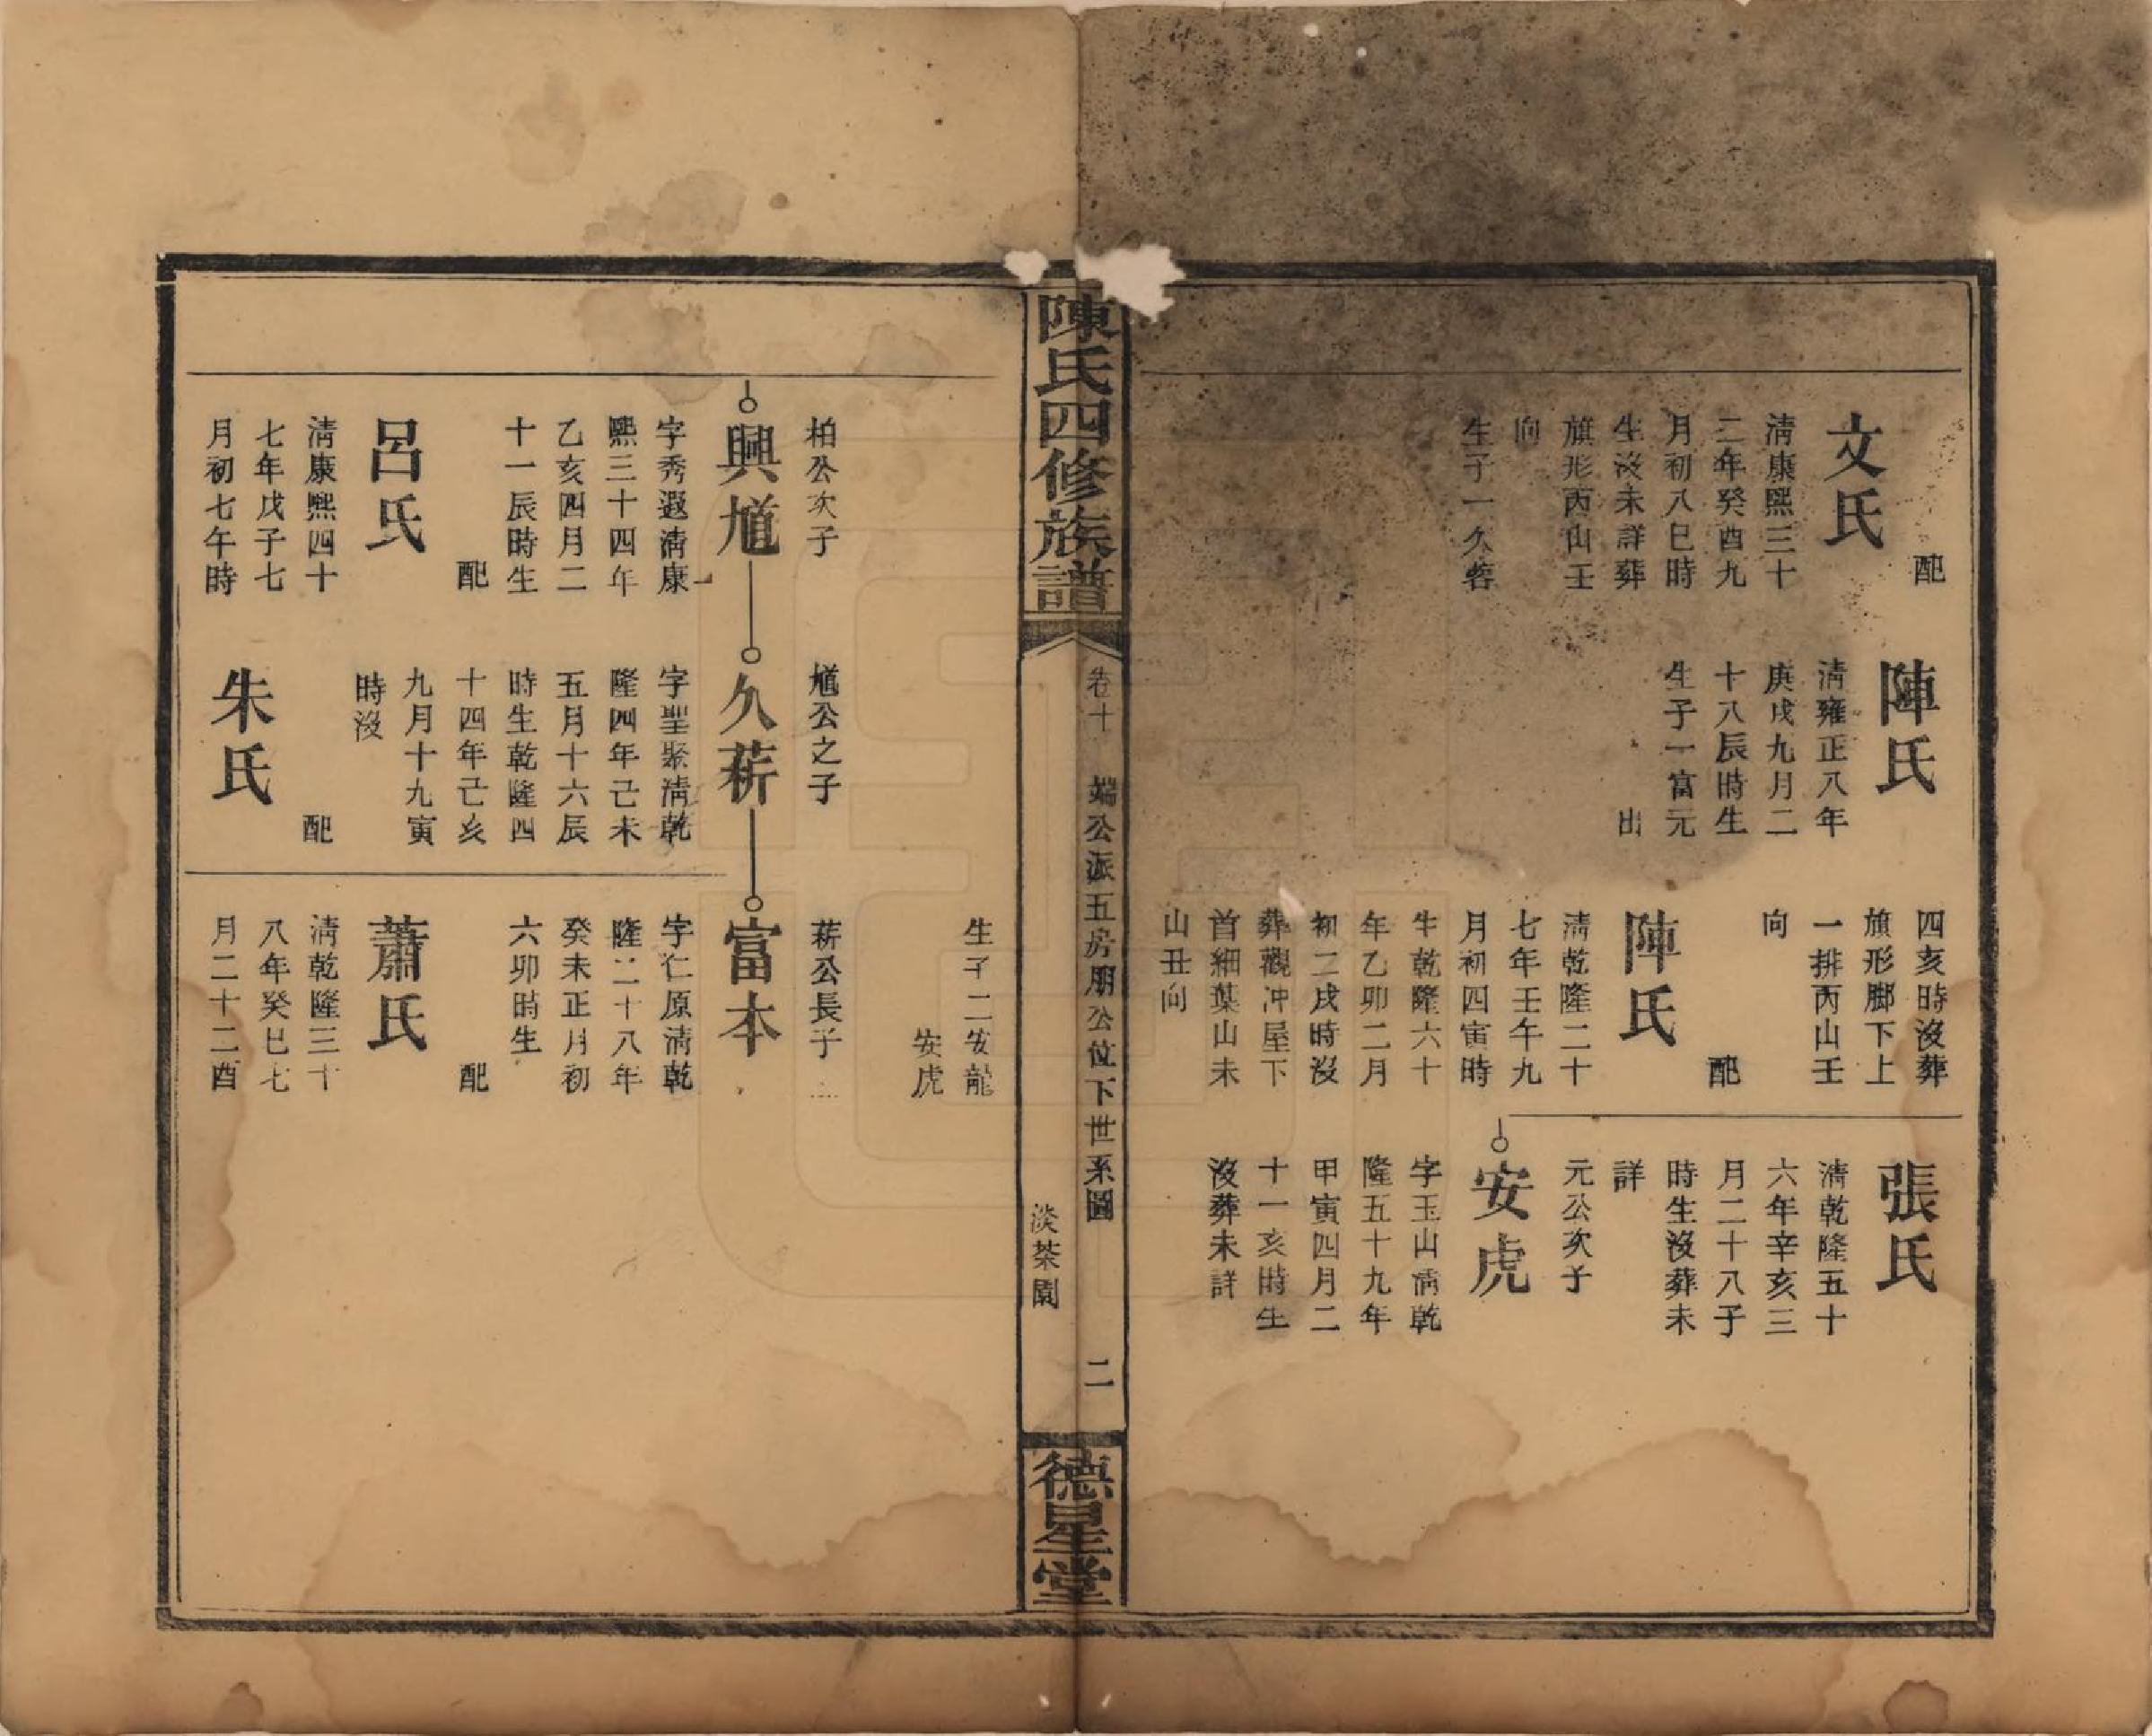 配
文氏
清康熙三十
二年癸酉九
月初八巳時
生沒未詳葬
旗形丙山壬
向
生子一久蓉
陳氏
清雍正八年
庚戌九月二
十八辰時生
生子一富元
出
四亥時沒葬
旗形脚下上
一排丙山壬
向
配
陳氏
清乾隆二十
七年壬午九
月初四寅時
生乾隆六十
年乙卯二月
初二戌時沒
葬觀冲屋下
首細葉山未
山丑向
張氏
清乾隆五十
六年辛亥三
月二十八子
時生沒葬未
詳
元公次子
安虎
字玉山清乾
隆五十九年
甲寅四月二
十一亥時生
沒葬未詳
陳氏四修族譜
卷十 端公派五房朋公位下世系圖 二
淡茶園
德星堂
柏公次子
興馗
字秀遐清康
熙三十四年
乙亥四月二
十一辰時生
配
呂氏
清康熙四十
七年戊子七
月初七午時
馗公之子
久薪
字聖聚清乾
隆四年己未
五月十六辰
時生乾隆四
十四年己亥
九月十九寅
時沒
配
朱氏
生子二安龍
安虎
薪公長子
富本
字仁原清乾
隆二十八年
癸未正月初
六卯時生
配
蕭氏
清乾隆三十
八年癸巳七
月二十二酉